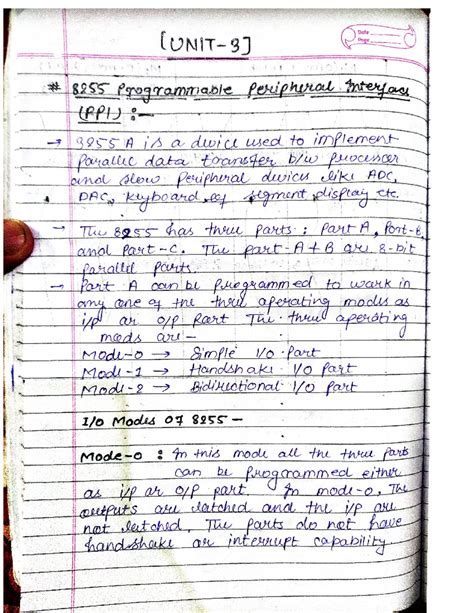 [UNIT-3]
Date
Page
# 8255 Programmable Peripheral Interface
(PPI) :-
→ 8255 A is a device used to implement
Parallel data transfer b/w processor
and slow Peripheral devices like ADC,
DAC, keyboard, segment display etc.
→ The 8255 has three parts ; Part A, Port-B,
and Part-C. The part-A + B are 8-bit
parallel parts.
→ Part A can be programmed to work in
any one of the three operating modes as
i/p or o/p Part The three operating
modes are -
Mode-0 → Simple I/O Part
Mode-1 → Handshake I/O Part
Mode-2 → Bidirectional I/O Part
I/O Modes Of 8255 -
Mode-0 : In this mode all the three parts
can be programmed either
as i/p or o/p part. In mode-0, The
outputs are latched and the i/p are
not latched. The parts do not have
handshake or interrupt capability